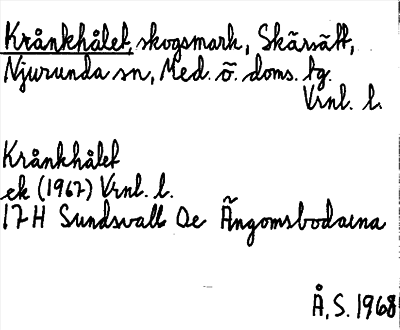 Krånkhålet, skogsmark, Skärsätt,
Njurunda sn, Med. ö. doms. tg.
Vrnl. l.
Krånkhålet
ek (1967) Vrnl. l.
17H Sundsvall Oe Ängomsbodarna
Å. S. 1968